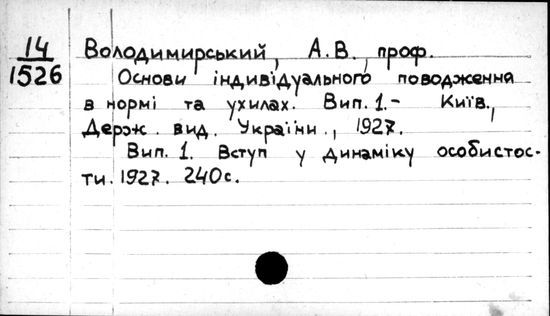 14
1526
Володимирський, А.В., проф.
Основи індивідуального поводження
в нормі та ухилах. Вип. 1.- Київ,
Держ. вид. України., 1927.
Вип. 1. Вступ у динаміку особистос-
ти. 1927. 240с.